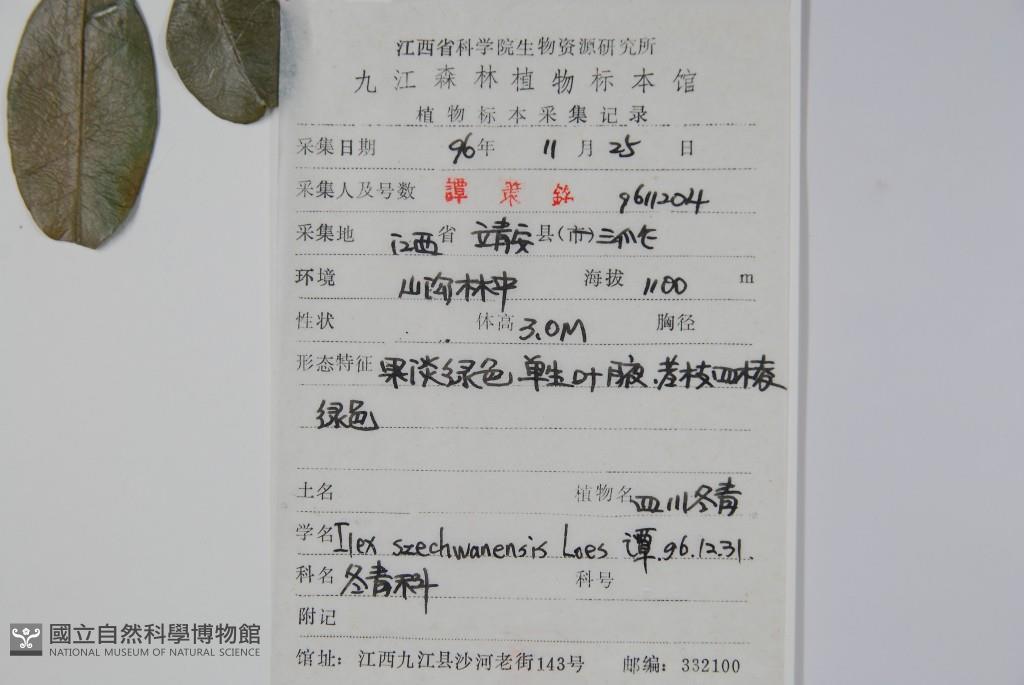 江西省科学院生物资源研究所
九江森林植物标本馆
植物标本采集记录
采集日期 96年 11月 25日
采集人及号数 譚 策 銘 9611204
采集地 江西省 靖安县(市)三爪仑
环境 山沟林中 海拔 1100 m
性状 体高 3.0M 胸径
形态特征 果淡绿色,单生叶腋.老枝四棱
绿色
土名 植物名 四川冬青
学名 Ilex szechwanensis Loes 谭.96.12.31.
科名 冬青科 科号
附记
馆址:江西九江县沙河老街143号 邮编:332100
國立自然科學博物館
NATIONAL MUSEUM OF NATURAL SCIENCE